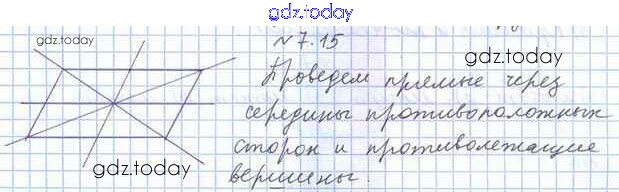 gdz.today
gdz.today
№ 7.15
gdz.today
Проведем прямые через
середины противоположных
сторон и противолежащие
gdz.today
вершины.